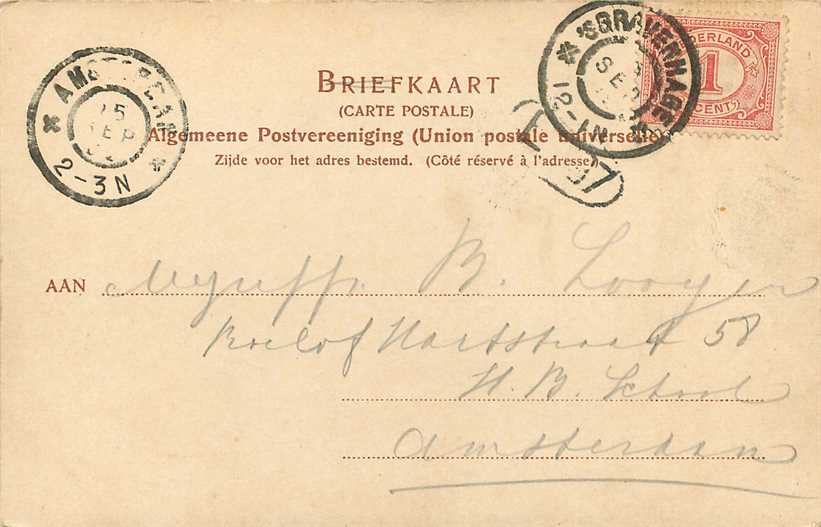 'SGRAVENHAGE
SEP
12-1N
NEDERLAND
1
CENT
AMSTERDAM
15
SEP
2-3N
BRIEFKAART
(CARTE POSTALE)
Algemeene Postvereeniging (Union postale universelle)
Zijde voor het adres bestemd. (Côté réservé à l'adresse)
AAN Mejuffr. B. Looyen
Roelof Hartstraat 58
H. B. School
Amsterdam